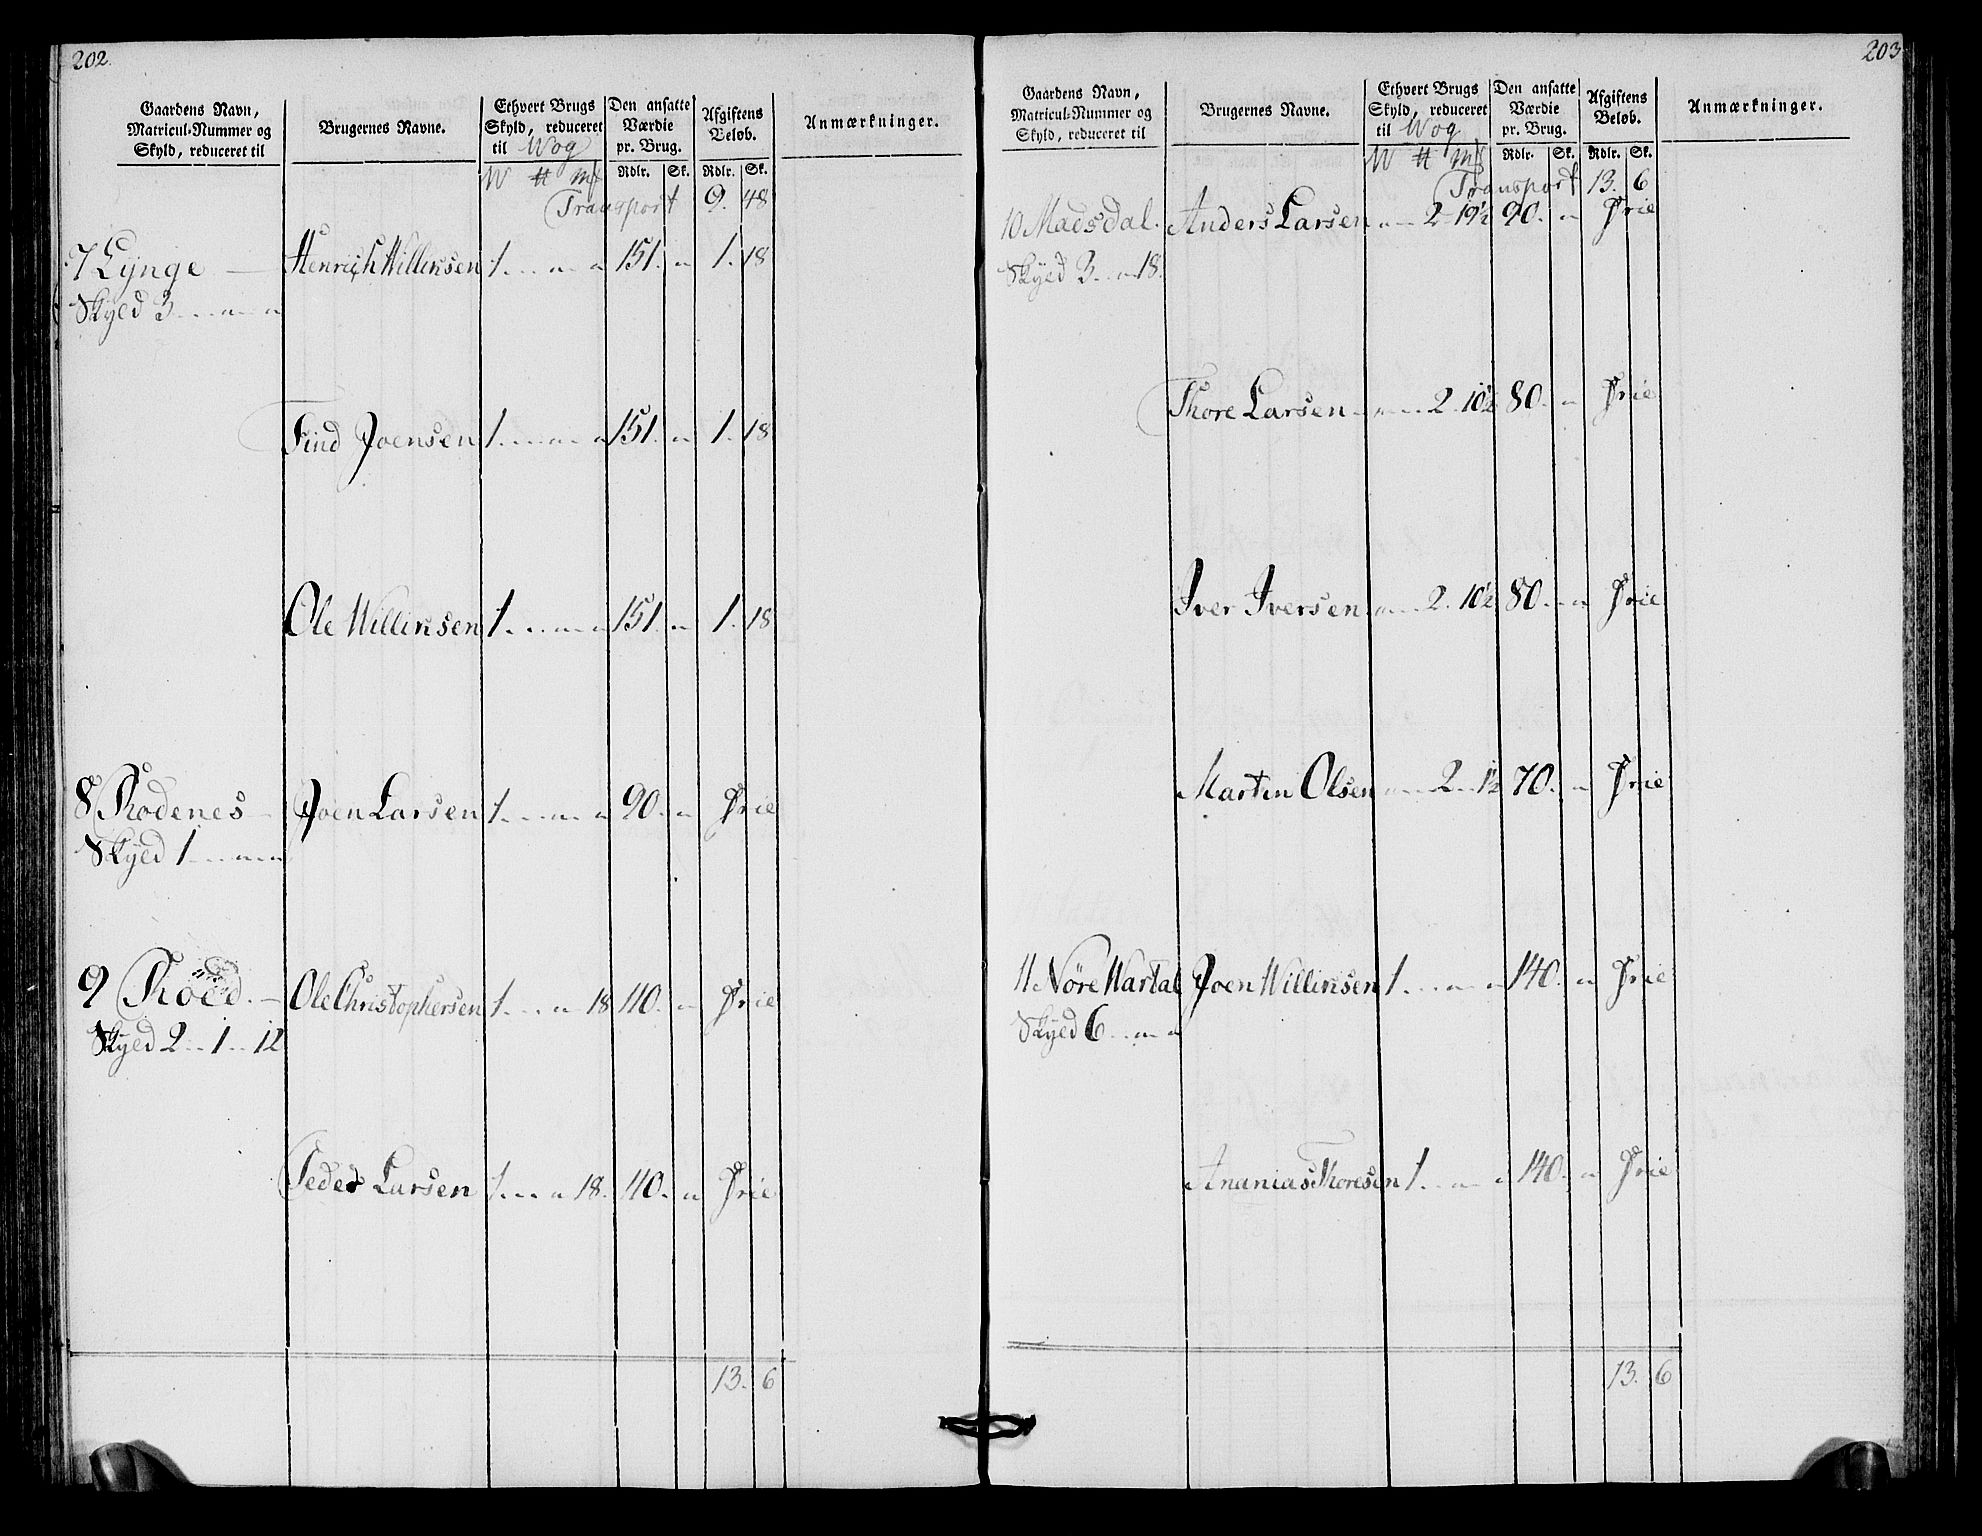 202.
Gaardens Navn, Matricul-Nummer og Skyld, reduceret til
Brugernes Navne.
Ethvert Brugs Skyld, reduceret til Wog
Den ansatte Værdie pr. Brug.
Afgiftens Beløb.
Anmærkninger.
W ㅐ mk Rdlr. Sk. Rdlr. Sk.
Transport 9. 48
7 Lynge — Henrich Willinsen 1 . . „ „ 151. „ 1. 18
Skyld 3 . . „ „
Find Joensen 1 . . „ „ 151. „ 1. 18
Ole Willinsen 1 . . „ „ 151. „ 1. 18
8 Rodenes — Joen Larsen 1 . . „ „ 90. „ Frie
Skyld 1 . . „ „
9 Roed. — Ole Christophersen 1 . . „ 18 110. „ Frie
Skyld 2 . . 1 . . 12
Peder Larsen 1 . . „ 18. 110. „ Frie
13. 6
203
Gaardens Navn, Matricul-Nummer og Skyld, reduceret til
Brugernes Navne.
Ethvert Brugs Skyld, reduceret til Wog
Den ansatte Værdie pr. Brug.
Afgiftens Beløb.
Anmærkninger.
W ㅐ mk Rdlr. Sk. Rdlr. Sk.
Transport 13. 6
10 Madsdal. Anders Larsen „ 2 19½ 90. „ Frie
Skyld 3 . . „ 18.
Thore Larsen „ 2. 10½ 80. „ Frie
Iver Iversen „ 2. 10½ 80. „ Frie
Martin Olsen „ 2 . . 1½ 70. „ Frie
11 Nöre Wartal Joen Willinsen 1 . . „ „ 140. „ Frie
Skyld 6 . . „ „
Ananias Thoresen 1 . . „ „ 140. „ Frie
13. 6